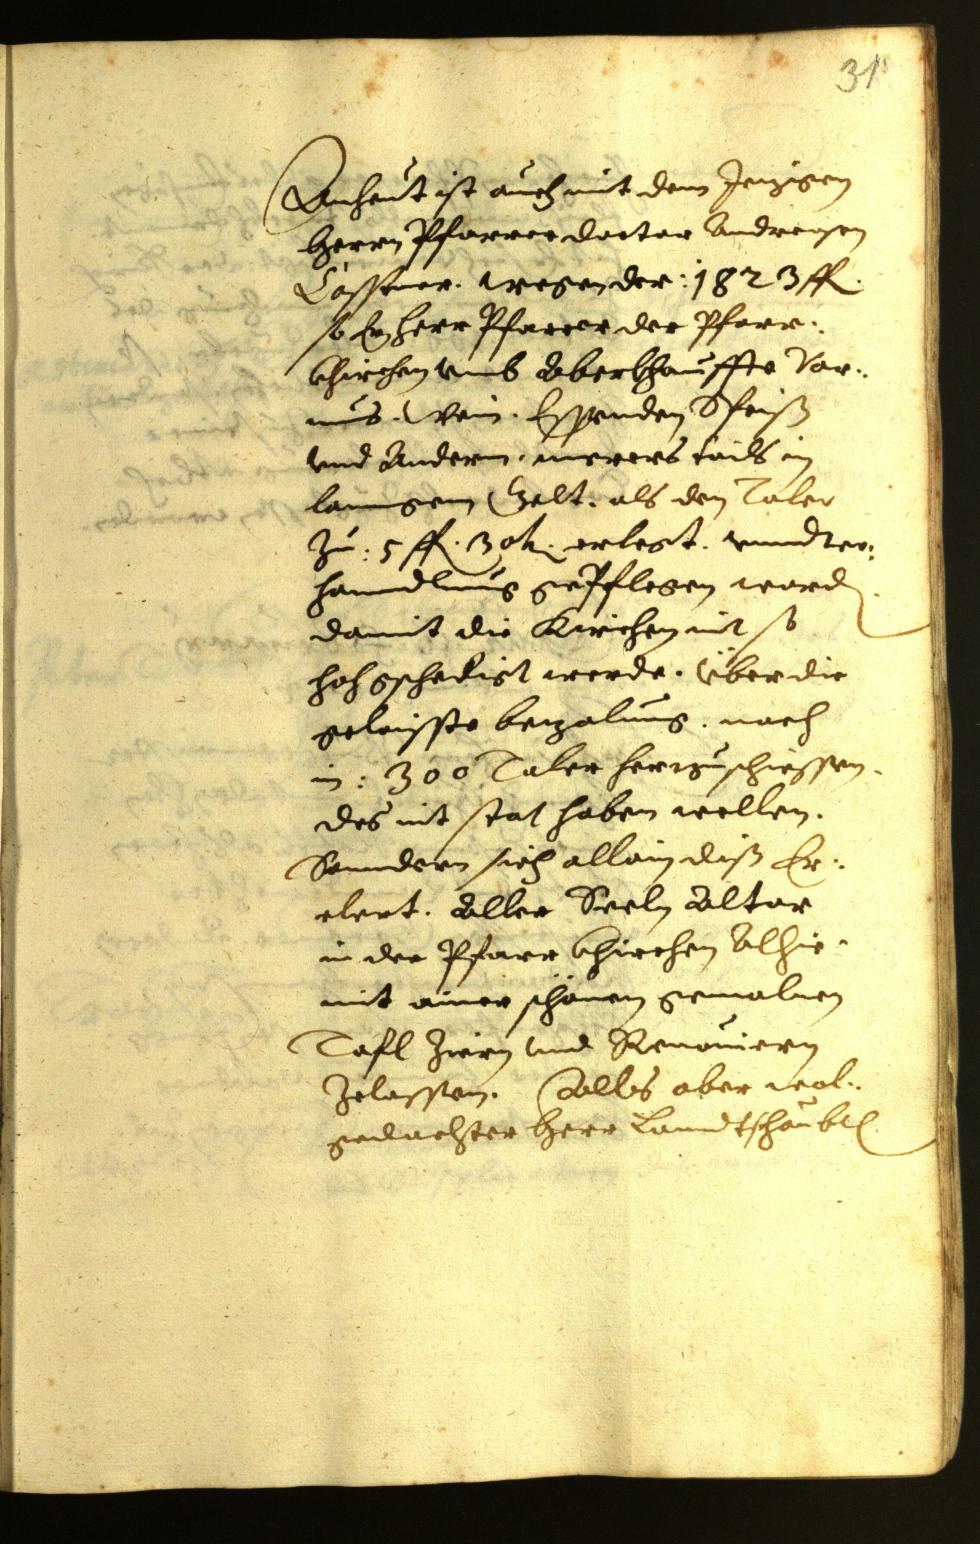 31
Anheut ist auch mit dem Jenigen
Herrn Pfarrer doctor Andreasen
wegen der: 1823 ff.
so Er Herr Pfarrer der Pfarr:
khirchen umb aberkhauffte Var:
nus. Wein. Essenden Speiß
und Andern. merers tails in
lanngem Gelt. als den Taler
Zu: 5 ff. 30 k. erlegt. unndter:
hanndlung gepflegen word
damit die Kirchen nit so
hoh geschedigt werde. Über die
gelaisste bezalung. noch
in: 300 Taler herzuschiessen.
des nit stat haben wellen.
Sonndern sich allain diß Er:
clert. Aller Seeln Altar
in der Pfarr khirchen Alhie.
mit ainer schönen gemalnen
Tafl Ziern und Renoviern
Zelassen. Alles aber wol:
gedachter Herr Landtshaubt